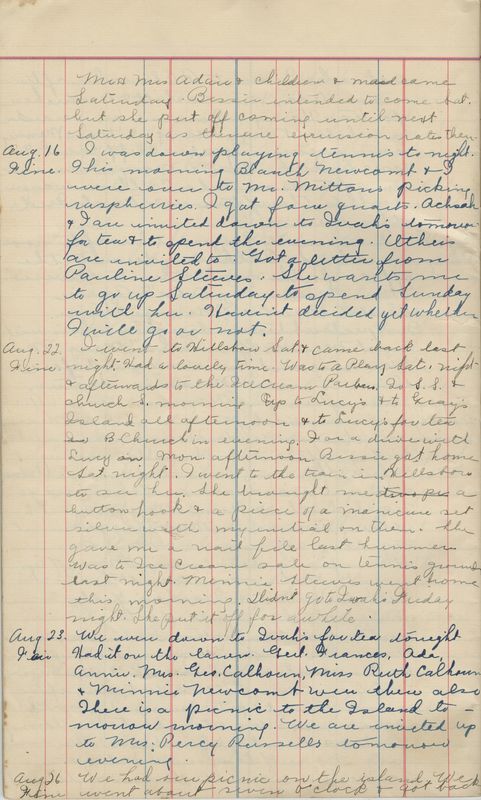 Mr & Mrs Adair & children & maid came
Saturday. Bessie intended to come but
but she put off coming until next
Saturday as there are excursion rates then.
Aug. 16 I was down playing tennis to night.
Fine. This morning Blanch Newcomb & I
were over to Mr. Mittons picking
raspberries. I got four quarts. Achsah
& I are invited down to Ivah's tomorrow
for tea & to spend the evening. Others
are invited to. Got a letter from
Pauline Steeves. She wants me
to go up Saturday to spend Sunday
with her. Haven't decided yet whether
I will go or not.
Aug. 22. I went to Hillsboro Sat & came back last
Fine. night. Had a lovely time. Was to a Play Sat. night
& afterwards to the Ice Cream Parlour. To S.S. &
church S. morning. Up to Lucy's & to Gray's
Island all afternoon & to Lucy's for tea
to B Church in evening. For a drive with
Lucy on Mon afternoon. Bessie got home
Sat night. I went to the train in Hillsboro
to see her. She brought me a
button hook & a piece of a manicure set
silver with my initial on them. She
gave me a nail file last summer.
Was to Ice Cream sale on tennis ground
last night. Minnie Steeves went home
this morning. Didn't go to Ivah's Friday
night. She put it off for a while.
Aug 23. We were down to Ivah's for tea tonight
Fair Had it on the lawn. Frances, Ada,
Annie, Mrs. Geo. Calhoun, Miss Ruth Calhoun
& Minnie Newcomb were there also
There is a picnic to the Island to-
morrow morning. We are invited up
to Mrs. Percy Russells tomorrow
evening.
Aug 26 We had our picnic on the island. We
Fine went about seven o'clock & got back